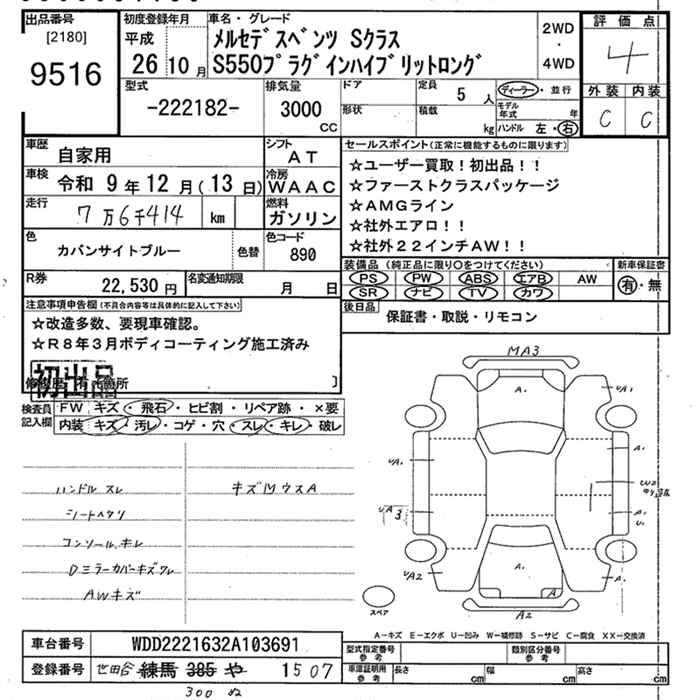 出品番号
[2180]
9516
初度登録年月
平成
26 10 月
車名・グレード
メルセデスベンツ Sクラス
S550プラグインハイブリットロング
2WD
・
4WD
評価点
4
外装 内装
C C
型式
-222182-
排気量
3000
CC
ドア
形状
定員
5 人
積載
kg
ディーラー・並行
モデル年式 年
ハンドル 左・右
車歴
自家用
シフト
AT
車検
令和 9年 12月(13日)
冷房
WAAC
走行
7万6千414
km
燃料
ガソリン
色
カバンサイトブルー
色替
色コード
890
R券
22,530 円
名変通知期限
月 日
セールスポイント(正常に機能するものに限ります)
☆ユーザー買取!初出品!!
☆ファーストクラスパッケージ
☆AMGライン
☆社外エアロ!!
☆社外22インチAW!!
装備品 (純正品に限り○をつけてください)
PS PW ABS エアB AW
SR ナビ TV カワ
新車保証書
有・無
後日品
保証書・取説・リモコン
注意事項申告欄(不具合内容等は具体的に記入して下さい)
☆改造多数、要現車確認。
☆R8年3月ボディコーティング施工済み
初出品
検査員
記入欄
FW キズ・飛石・ヒビ割・リペア跡・×要
内装 キズ・汚レ・コゲ・穴・スレ・キレ・破レ
ハンドルスレ
シートヘタリ
コンソールキレ
Dミラーカバーキズワレ
AWキズ
MA3
A.
A.
A.
A.
A2
スペア
A-キズ E-エクボ U-凹み W-補修跡 S-サビ C-腐食 XX-交換済
車台番号
WDD2221632A103691
登録番号
世田谷 練馬 385 や 1507
300 ぬ
型式指定番号
参考
類別区分番号
参考
車庫証明用
参考
長さ cm
幅 cm
高さ cm